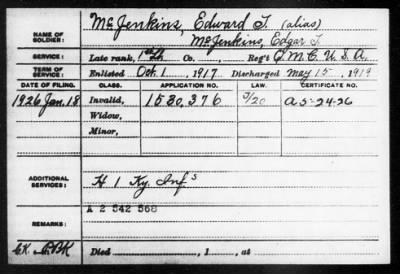 NAME OF SOLDIER: McJenkins, Edward T. (alias)
McJenkins, Edgar T.
SERVICE: Late rank, 1st Lt. Co. " Reg't Q.M.C. U.S.A.
TERM OF SERVICE: Enlisted Oct. 1, 1917 Discharged May 15, 1919
DATE OF FILING. CLASS. APPLICATION NO. LAW. CERTIFICATE NO.
1926 Jan. 18 Invalid, 1530,376 J/20 A 5-24-26
Widow,
Minor,
ADDITIONAL SERVICES: H 1 Ky. Inf s
A 2 542 568
REMARKS:
CK. Died , 1 , at